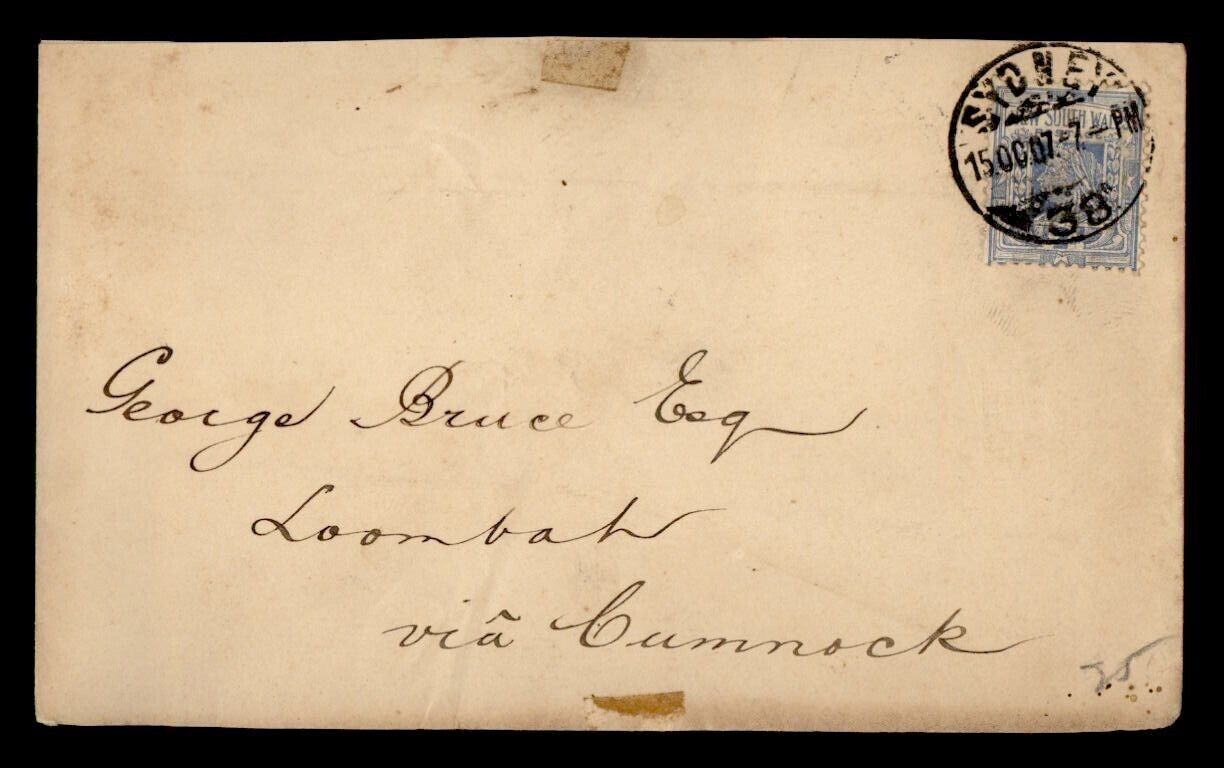 SYDNEY
15.OC.07.-7.-PM
38
SOUTH WA
George Bruce Esq
Loombah
viã Cumnock
35